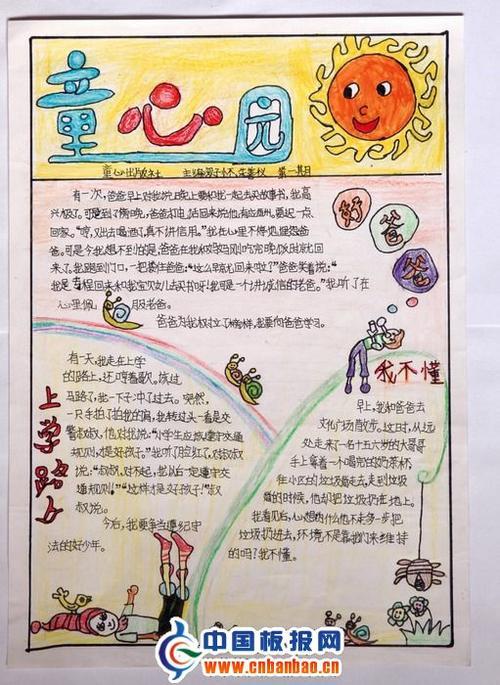 童心园
童心出版社 主编 第一期
好爸爸
有一次,爸爸早上对我说上晚上要和我一起去买故事书,我高
兴极了。可是到了傍晚,爸爸打电话回来说他有应酬,要迟一点
回家。"哼,又出去喝酒了,真不讲信用。"我在心里不停埋怨爸
爸。可是今我想不到的是,爸爸在我和妈妈刚吃完晚饭时就回
来了。我跑到门口,一把搂住爸爸:"这么早就回来啦?"爸爸笑着说:"
我是专程回来和我宝贝女儿去买书呀!我可是一个讲诚信的老爸。"我听了在
心里佩服老爸。
爸爸为我树立了榜样,我要向爸爸学习。
上学路上
有一天,我走在上学
的路上,还哼着歌。该过
马路了,我一下子冲了过去。突然,
一只手拍了拍我的肩,我转过头一看是交
警叔叔,他对我说:"小学生应该遵守交通
规则,才是好孩子。"我听了脸红了,对叔叔
说:"叔叔,对不起,我以后一定遵守交
通规则!""这样才是好孩子!"叔
叔说。
今后,我要争当遵纪守
法的好少年。
我不懂
早上,我和爸爸去
文化广场散步。这时,从远
处走来了一名十五六岁的大哥哥
手上拿着一个喝完的奶茶杯
在小区的垃圾桶走,走到垃圾
桶的时候,他却把垃圾扔在地上。
我看见后,心想为什么他不走多一步把
垃圾扔进去,环境不是靠我们来维持
的吗?我不懂。
中国板报网
www.cnbanbao.cn